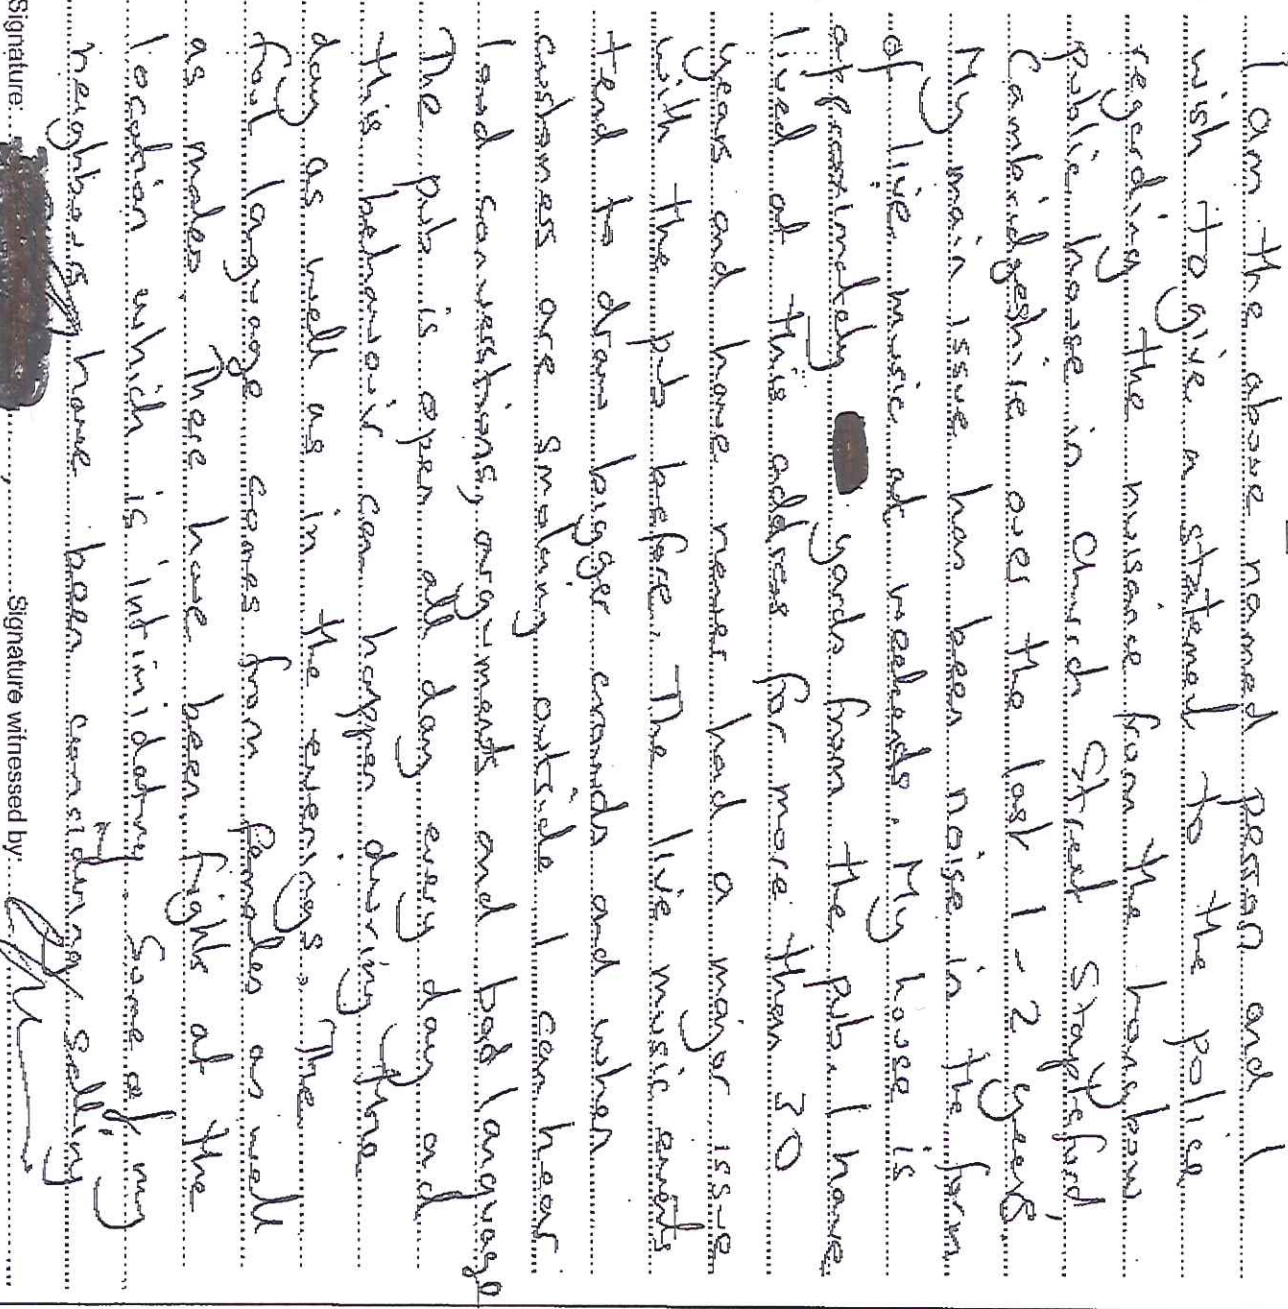 I am the above named person and I
wish to give a statement to the police
regarding the nuisance from the Longbow
public house in Church Street Stapleford
Cambridgeshire over the last 1-2 years.
My main issue has been noise in the form
of live music at weekends. My house is
approximately yards from the pub. I have
lived at this address for more then 30
years and have never had a major issue
with the pub before. The live music events
tend to draw bigger crowds and when
customers are smoking outside I can hear
loud conversations, arguments and bad language
The pub is open all day every day and
this behavoir can happen during the
day as well as in the evenings. The
foul language comes from females as well
as males. There have been fights at the
location which is intimidating. Some of my
neighbours have been considering selling
Signature: Signature witnessed by: